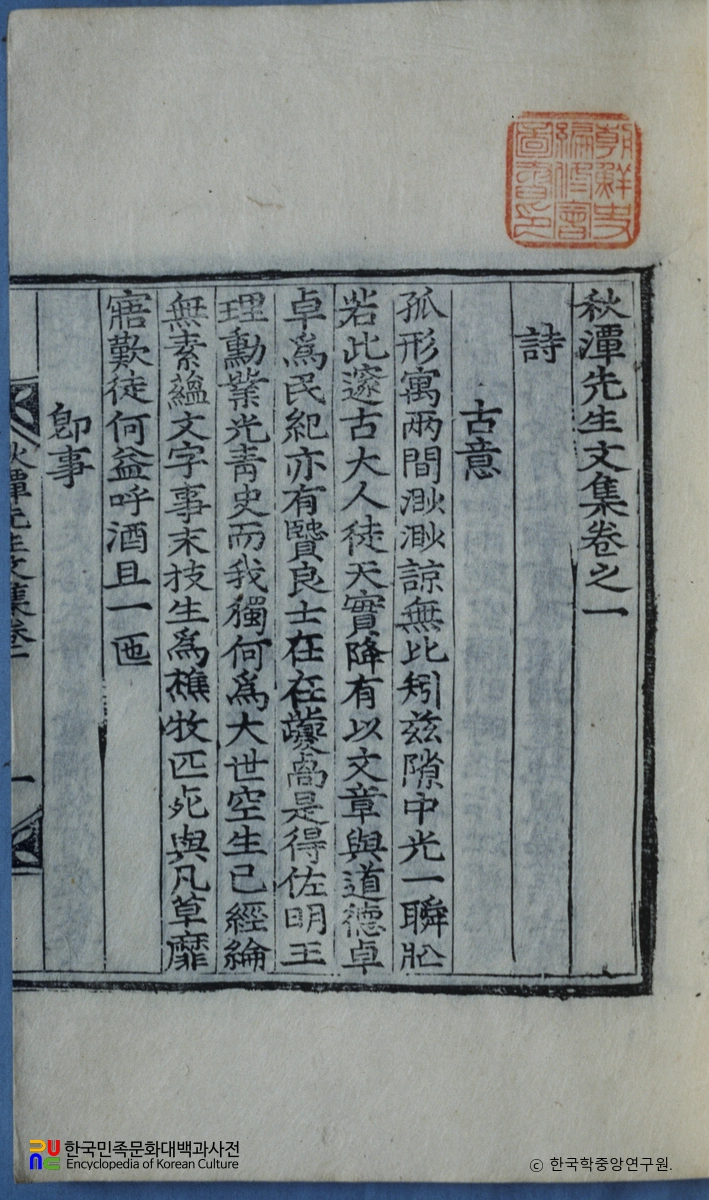 朝鮮史
編修會
圖書印
秋潭先生文集卷之一
詩
古意
孤形寓兩間渺渺諒無比矧玆隙中光一瞬
若此邃古大人徒天實降有以文章與道德卓
卓爲民紀亦有賢良士在在夔卨是得佐明王
理勳業光靑史而我獨何爲大世空生已經綸
無素蘊文字事末技生爲樵牧匹死與凡草靡
寤歎徒何益呼酒且一
卽事
秋潭先生文集卷一
一
한국민족문화대백과사전
Encyclopedia of Korean Culture
ⓒ 한국학중앙연구원.